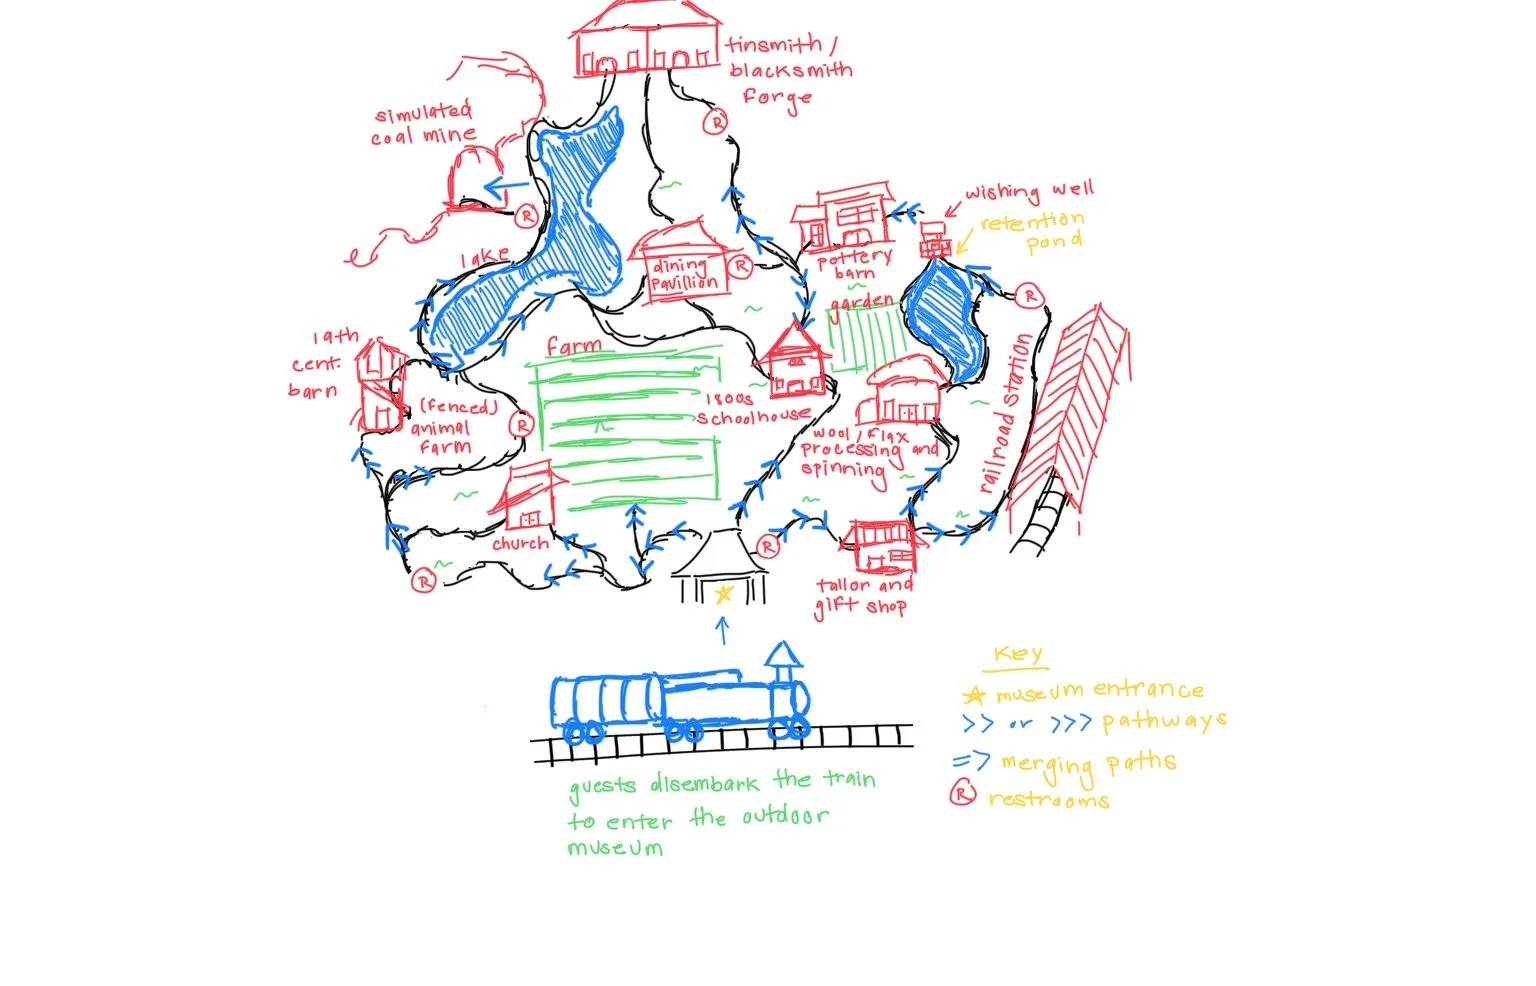 tinsmith/
blacksmith
forge
simulated
coal mine
R
R
wishing well
retention
pond
lake
dining
pavillion
R
pottery
barn
garden
R
19th
cent.
barn
farm
(fenced)
animal
farm
R
1800s
schoolhouse
wool/flax
processing and
spinning
railroad station
church
R
R
tailor and
gift shop
Key
museum entrance
>> or >>> pathways
=> merging paths
R restrooms
guests disembark the train
to enter the outdoor
museum